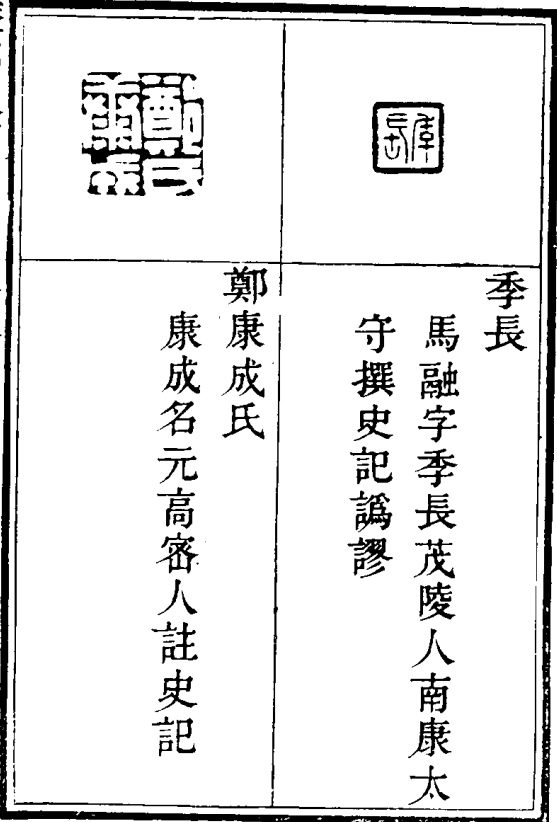 季長
季長
馬融字季長茂陵人南康太
守撰史記譌謬
鄭康成氏
鄭康成氏
康成名元高密人註史記